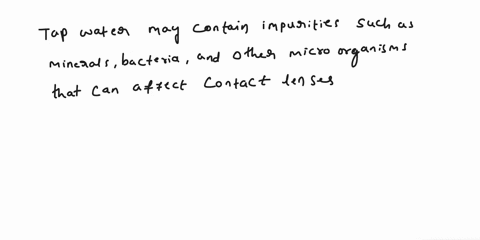 Tap water may contain impurities such as
minerals, bacteria, and other micro organisms
that can affect contact lenses